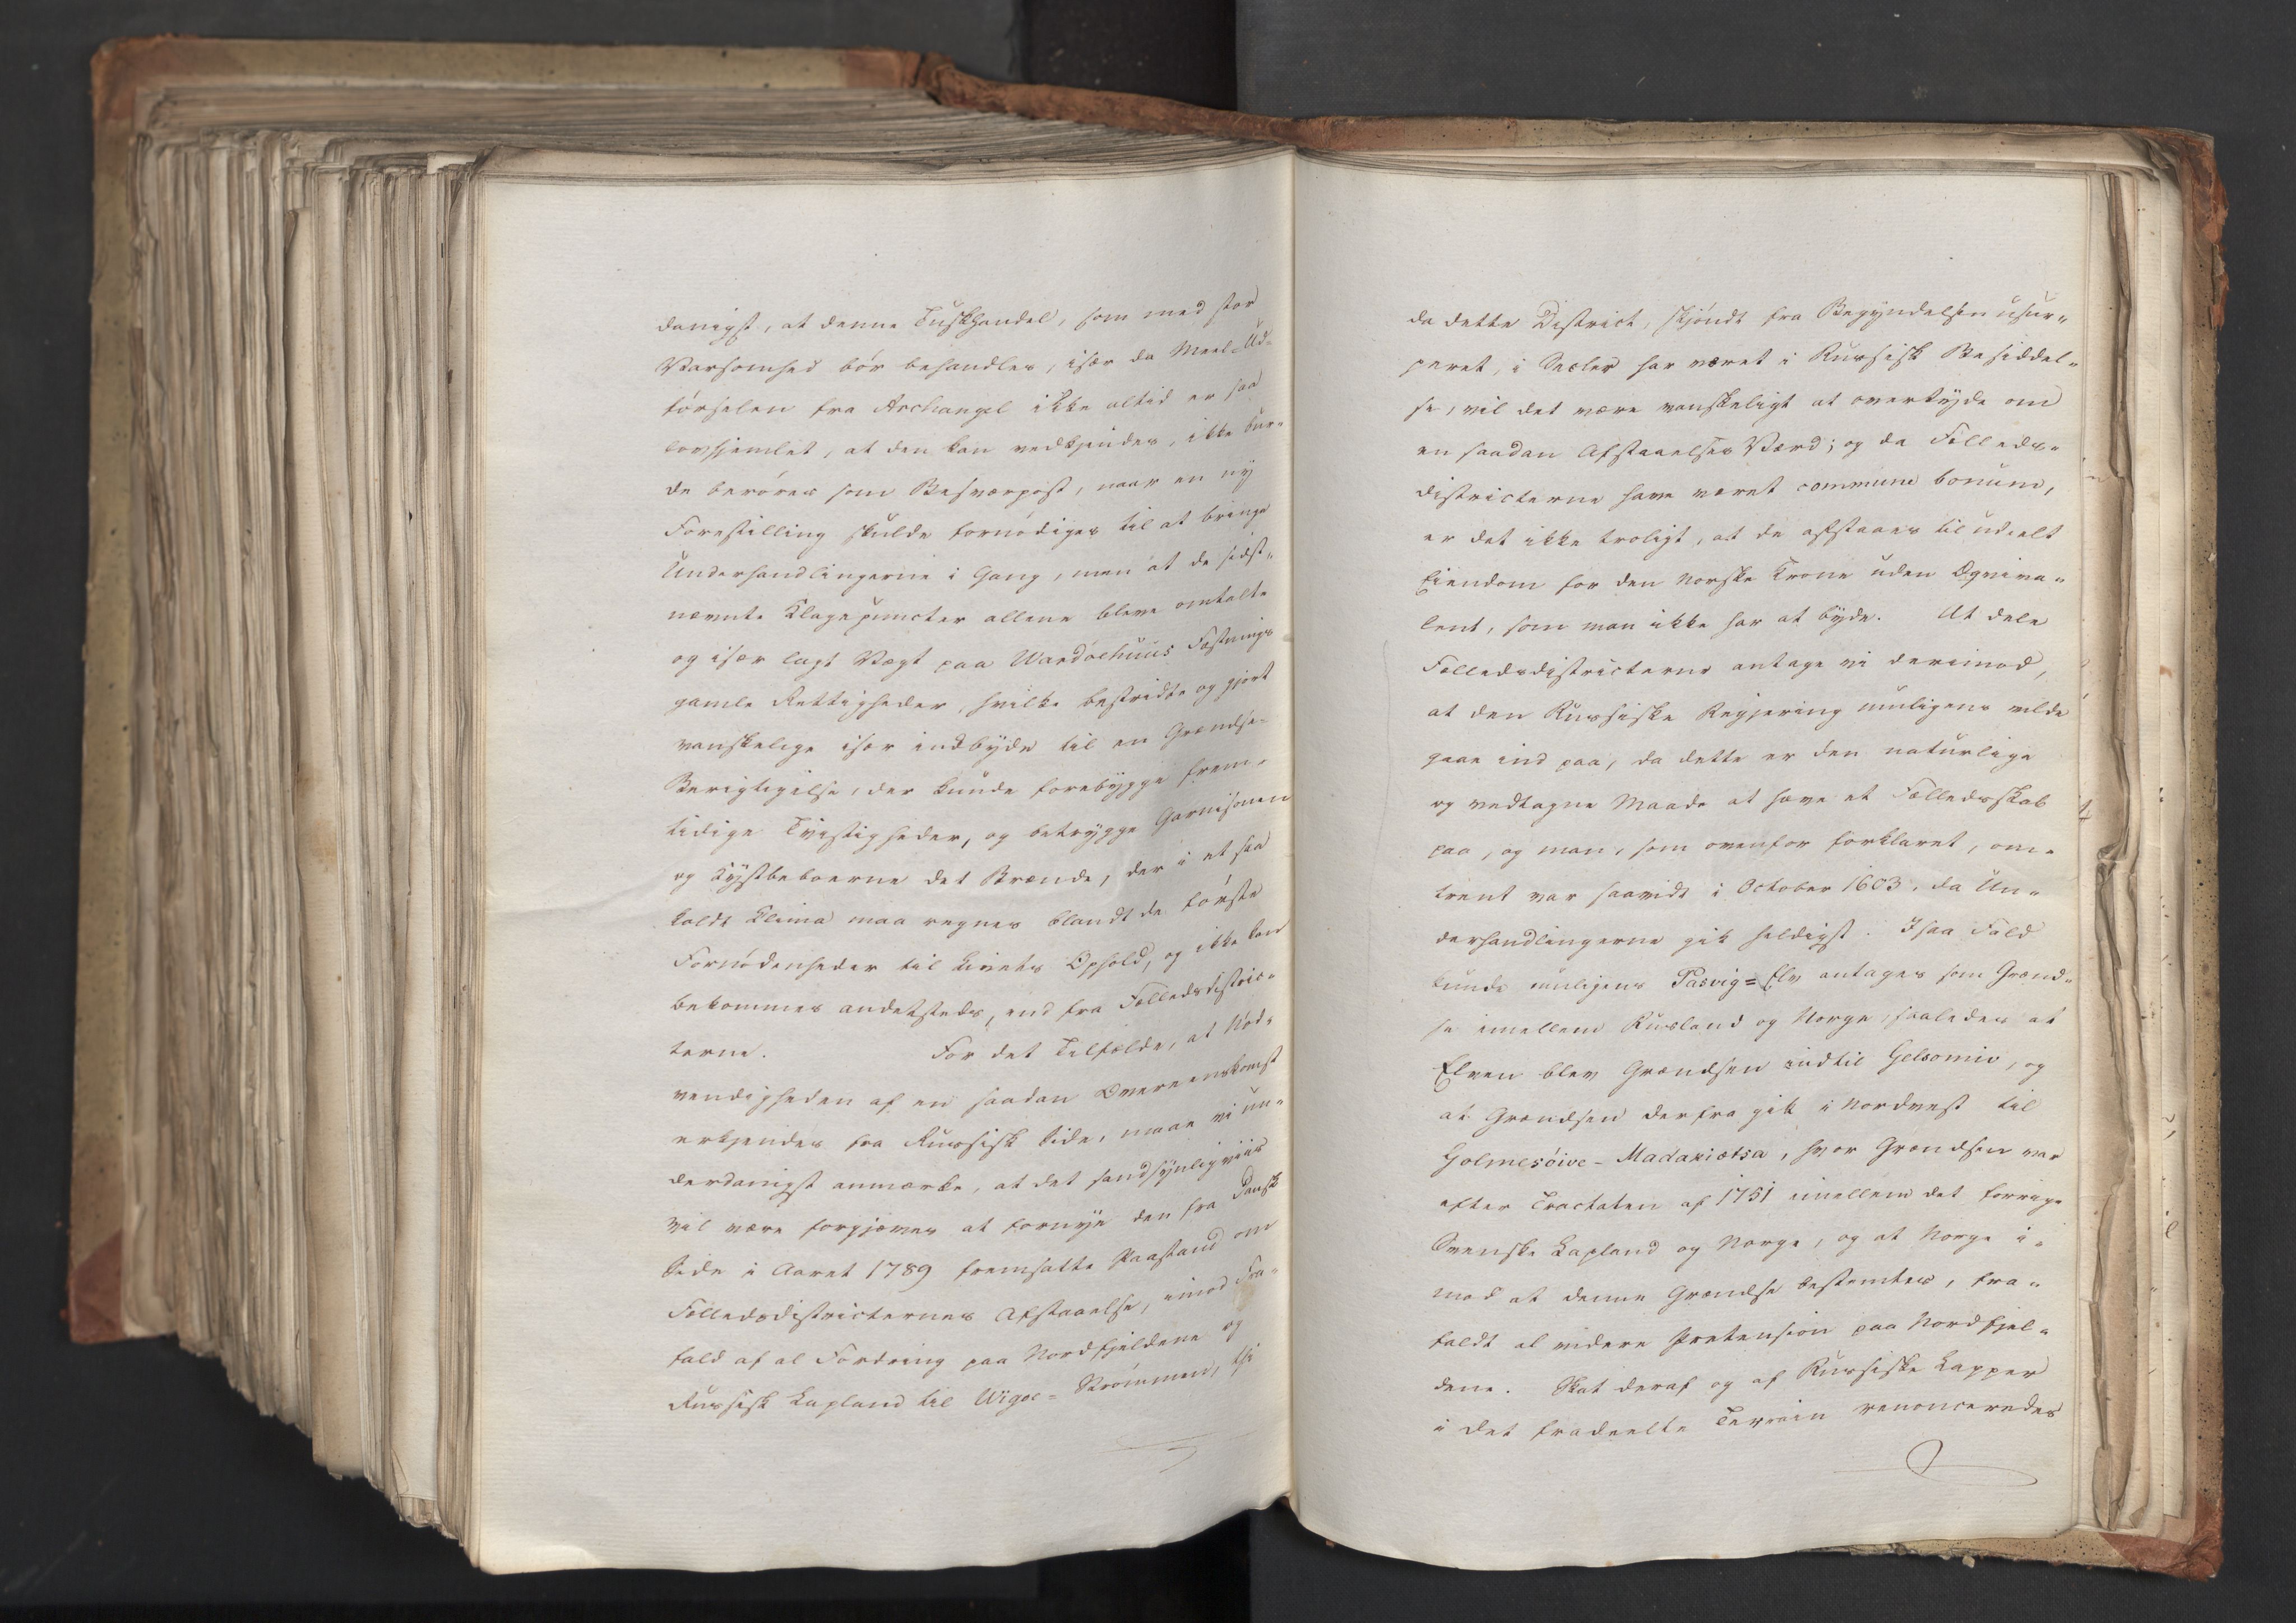 danigst, at denne Tuskhandel, som med stor
Varsomhed bör behandles, især da Meel-Ud-
förselen fra Archangel ikke altid er saa
lovhjemlet, at den kan vedkjendes, ikke bur-
de beröres som Besværpost, naar en ny
Forestilling skulde fornödiges til at bringe
Underhandlingerne i Gang, men at de sidst-
nævnte Klagepuncter allene bleve omtalte
og især lagt Vægt paa Wardöehuus Fæstnings
gamle Rettigheder, hvilke bestridte og gjort
vanskelige især indbyde til en Grændse-
Berigtigelse, der kunde forebygge frem-
tidige Tvistigheder, og betrygge Garnisonen
og Kystbeboerne det Brænde, der i et saa
koldt Klima maa regnes blandt de förste
Fornödenheder til Livets Ophold, og ikke kan
bekommes andetsteds, end fra Fælledsdistric-
terne. For det Tilfælde, at Nöd-
vendigheden af en saadan Overeenskomst
erkjendes fra Russisk Side, maae vi un-
derdanigst anmærke, at det sandsynligviis
vil være forgjæves at fornye den fra Dansk
Side i Aaret 1789 fremsatte Paastand om
Fælledsdistricternes Afstaaelse, imod Fra-
fald af al Fordring paa Nordfjeldene og
Russisk Lapland til Wigoe-Strömmen, thi
da dette District, skjöndt fra Begyndelsen usur-
peret, i Secler har været i Russisk Besiddel-
se, vil det være vanskeligt at overtyde om
en saadan Afstaaelses Værd; og da Fælleds-
districterne have været commune bonum,
er det ikke troligt, at de afstaaes til udeelt
Eiendom for den norske Krone uden Æqviva-
lent, som man ikke har at byde. At dele
Fælledsdistricterne antage vi derimod,
at den Russiske Regjering muligens vilde
gaae ind paa, da dette er den naturlige
og vedtagne Maade at hæve et Fælledsskab
paa, og man, som ovenfor forklaret, om-
trent var saavidt i October 1603, da Un-
derhandlingerne gik heldigst. I saa Fald
kunde muligens Pasvig=Elv antages som Grænd-
se imellem Rusland og Norge, saaledes at
Elven blev Grændsen indtil Gelsomio, og
at Grændsen derfra gik i Nordvest til
Golmesöive-Madakiætsa, hvor Grændsen var
efter Tractaten af 1751 imellem det forrige
Svenske Lapland og Norge, og at Norge i-
mod at denne Grændse bestemtes, fra-
faldt al videre Prætension paa Nordfjel-
dene. Skat deraf og af Russiske Lapper
i det fradeelte Terrain renonceredes